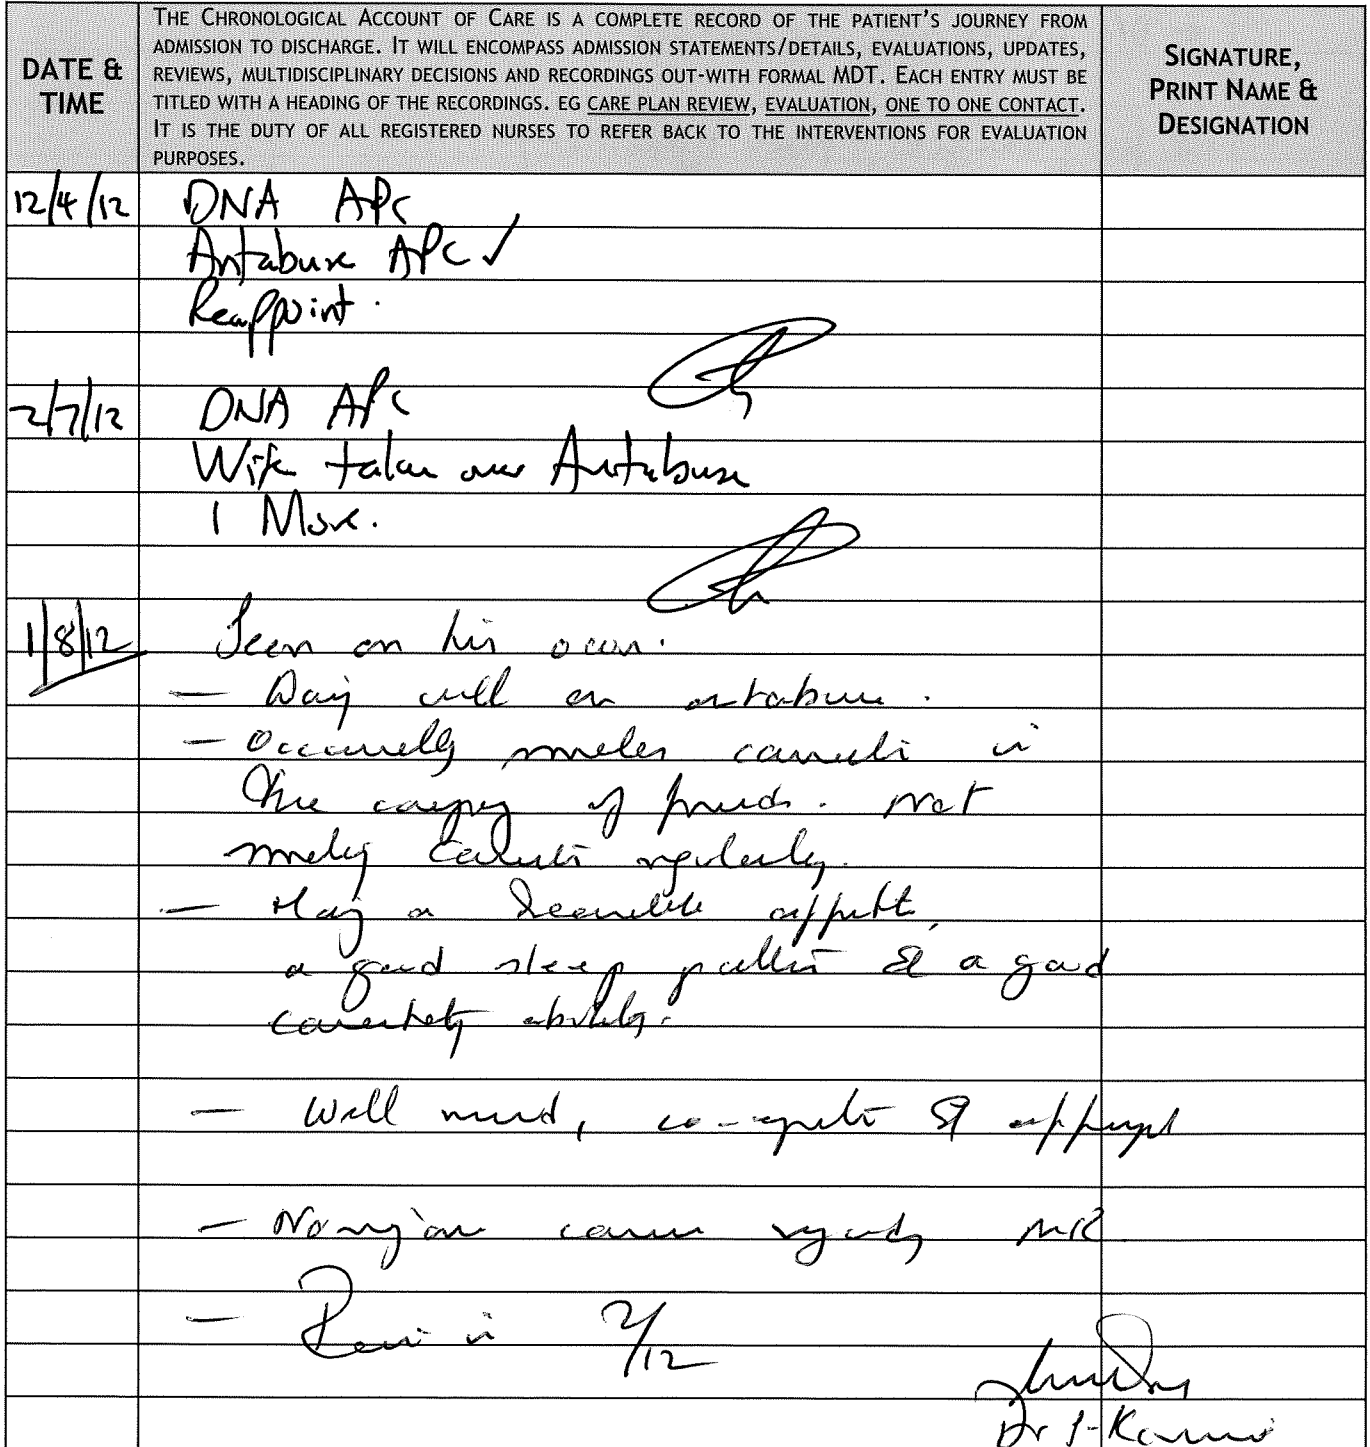 DATE & TIME
THE CHRONOLOGICAL ACCOUNT OF CARE IS A COMPLETE RECORD OF THE PATIENT'S JOURNEY FROM
ADMISSION TO DISCHARGE. IT WILL ENCOMPASS ADMISSION STATEMENTS/DETAILS, EVALUATIONS, UPDATES,
REVIEWS, MULTIDISCIPLINARY DECISIONS AND RECORDINGS OUT-WITH FORMAL MDT. EACH ENTRY MUST BE
TITLED WITH A HEADING OF THE RECORDINGS. EG CARE PLAN REVIEW, EVALUATION, ONE TO ONE CONTACT.
IT IS THE DUTY OF ALL REGISTERED NURSES TO REFER BACK TO THE INTERVENTIONS FOR EVALUATION
PURPOSES.
SIGNATURE,
PRINT NAME &
DESIGNATION
12/4/12 DNA APC
Antabuse APC ✓
Reappoint.
2/7/12 DNA APC
Wife taken over Antabuse
1 More.
1/8/12 Seen on his own.
- Doing well on antabuse.
- Occasionally smokes cannabis in
the company of friends. Not
smoking cannabis regularly.
- Having a reasonable appetite,
a good sleep pattern & a good
concentration ability.
- Well, &
- No major concern regarding
- Review in 2/12
Dr